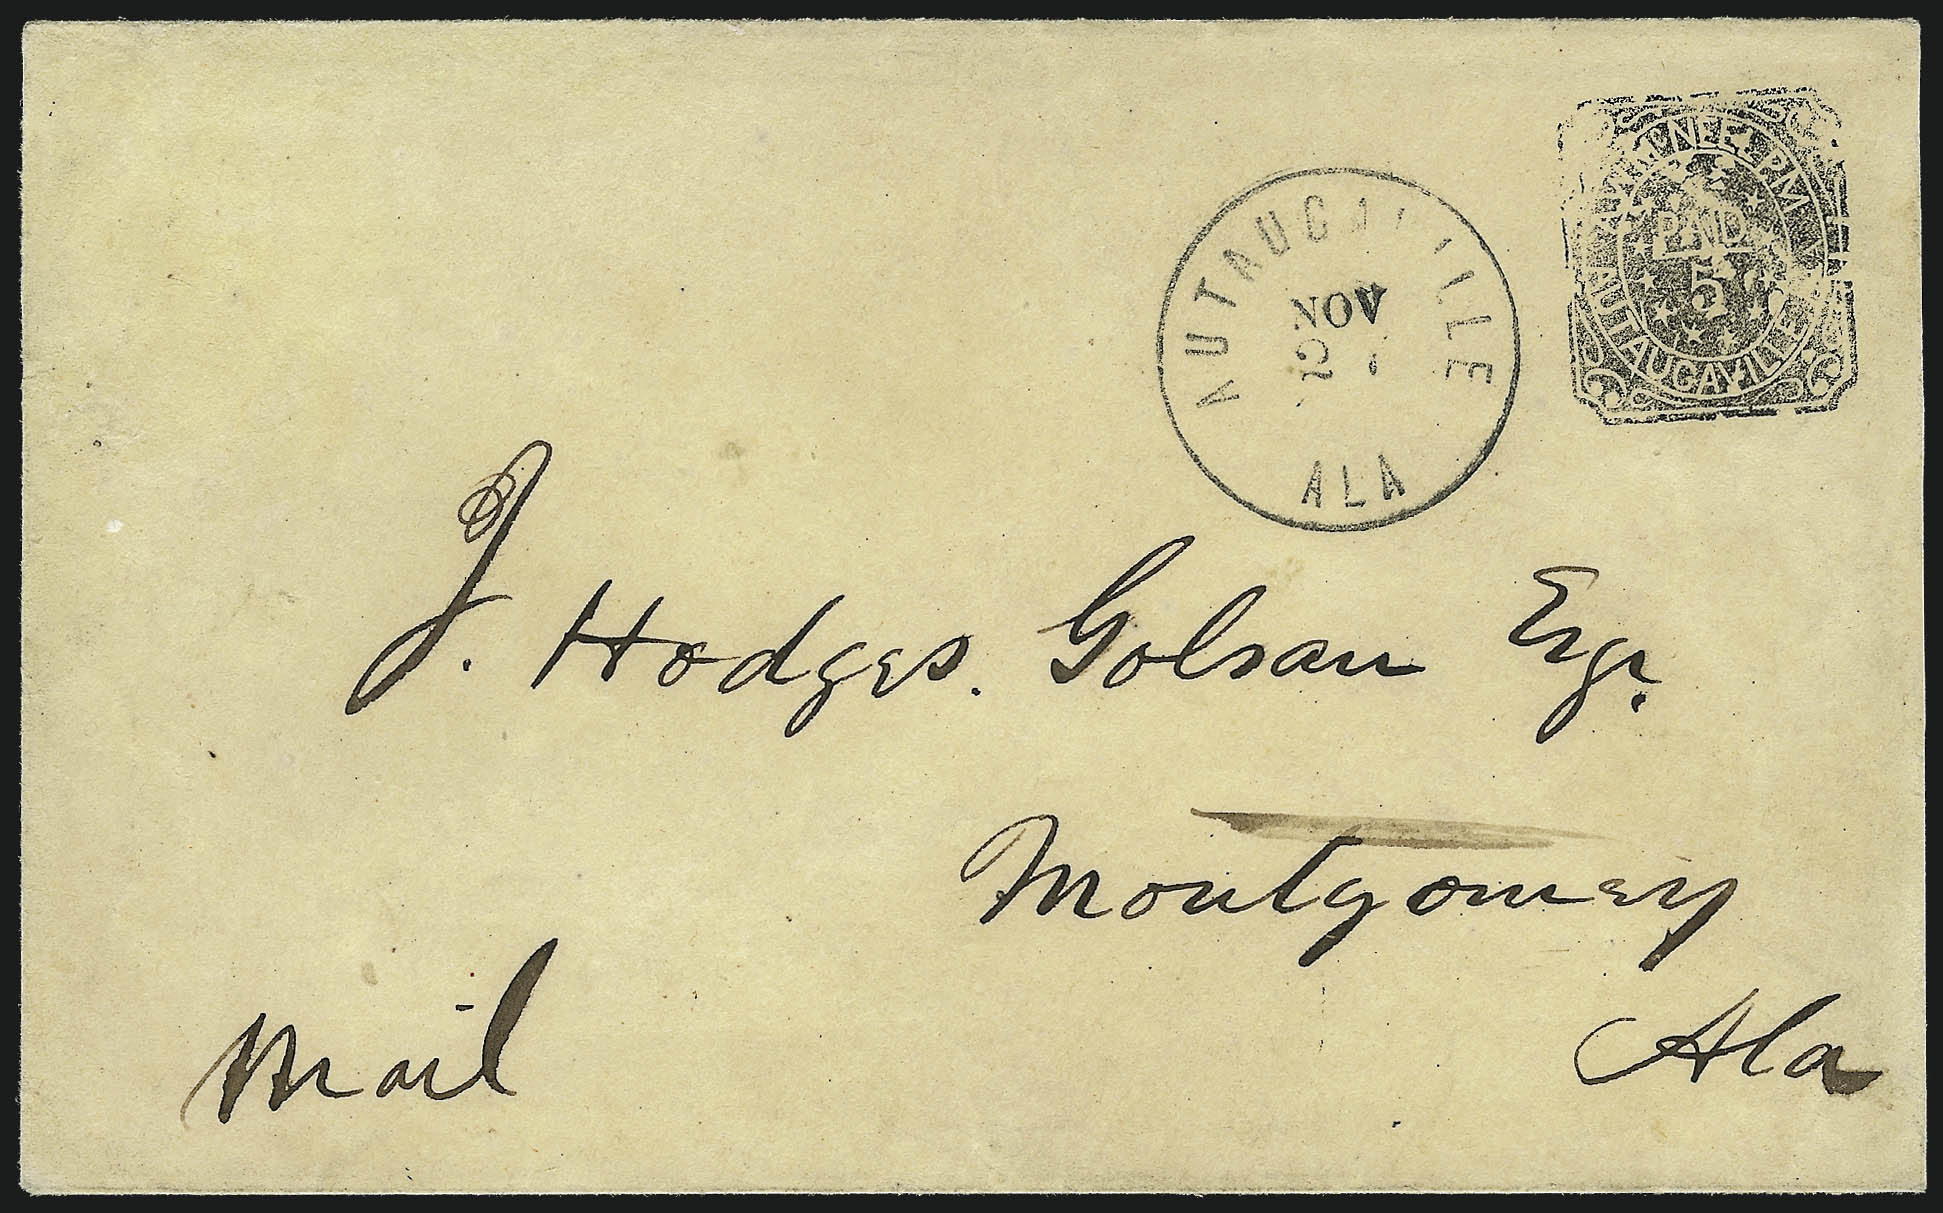 AUTAUGAVILLE
NOV
2
ALA
PM
PAID
5
AUTAUGAVILLE
J. Hodges. Golsan Esqr.
Montgomery
Ala
Mail